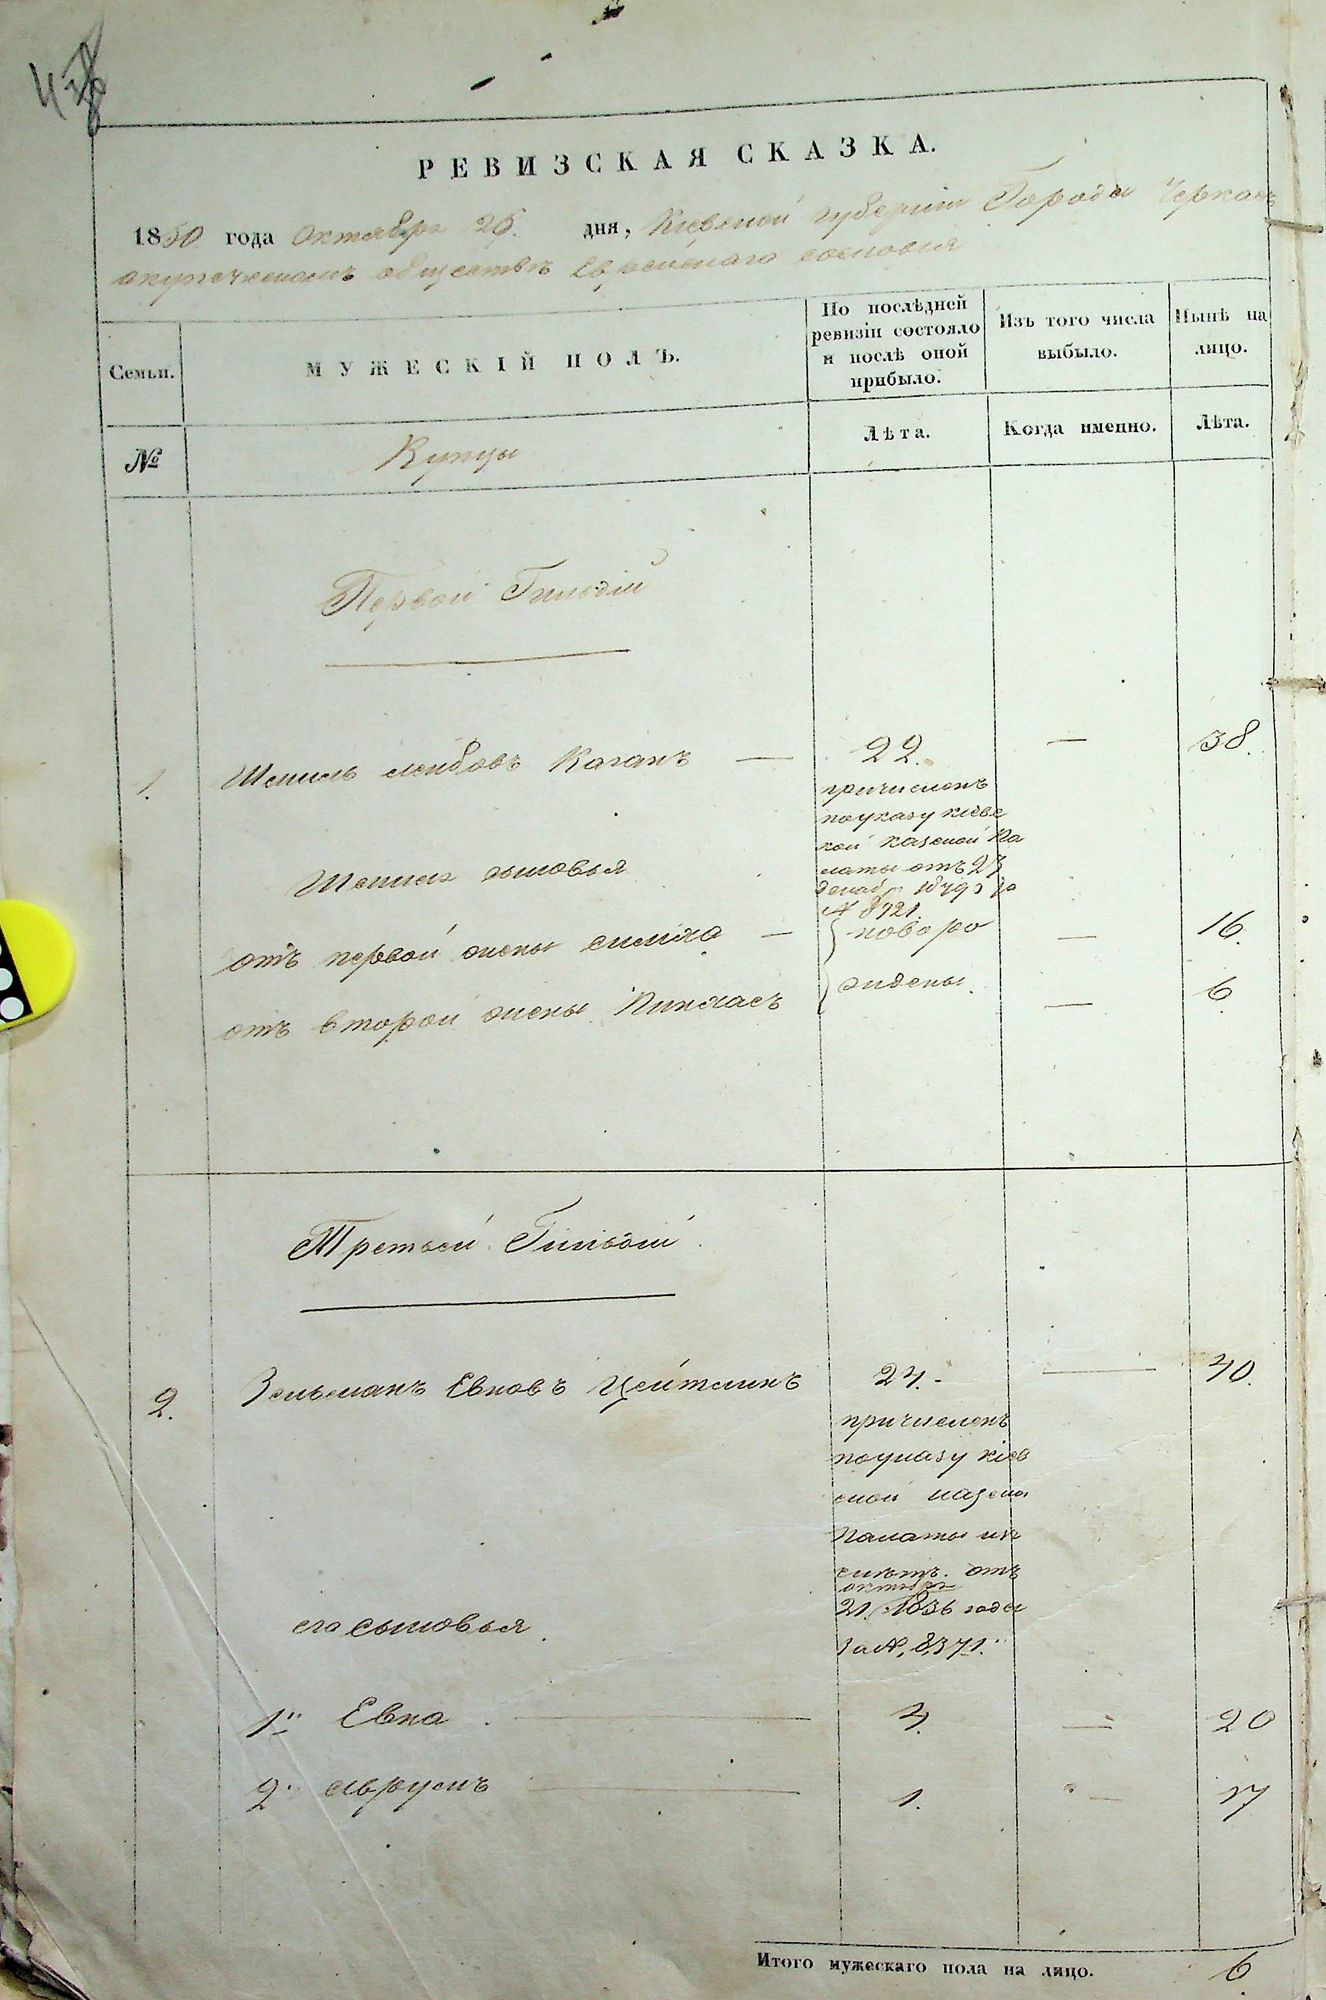 РЕВИЗСКАЯ СКАЗКА.
1850 года Октября 26. дня, Киевской губернии Города Черкасъ
окупеческомъ обществѣ Еврейскаго сословія
Семьи.
МУЖЕСКІЙ ПОЛЪ.
По послѣдней
ревизіи состояло
и послѣ оной
прибыло.
Изъ того числа
выбыло.
Нынѣ на
лицо.
№
Купцы
Лѣта.
Когда именно.
Лѣта.
Первой Гильдіи
1. Шмиль Лейбовъ Каганъ — 22. — 38.
причисленъ
поуказу киевс
кой казеной па
латы отъ 23
декабр 1849 г за
№ 8721.
Шмиля сыновья
отъ первой жены Симха — новоро — 16.
отъ второй жены Пинхасъ жидены. — 6
Третьей Гильдіи
2. Зельманъ Евновъ Цейтлинъ 24. - — 40.
причисленъ
поуказу кіев
ской казено
палаты
отъ
октября
21. 1836 года
За №, 8371.
его сыновья
1й Евна — 4. — 20
2. Аврумъ — 1. — 17
Итого мужескаго пола на лицо. 6